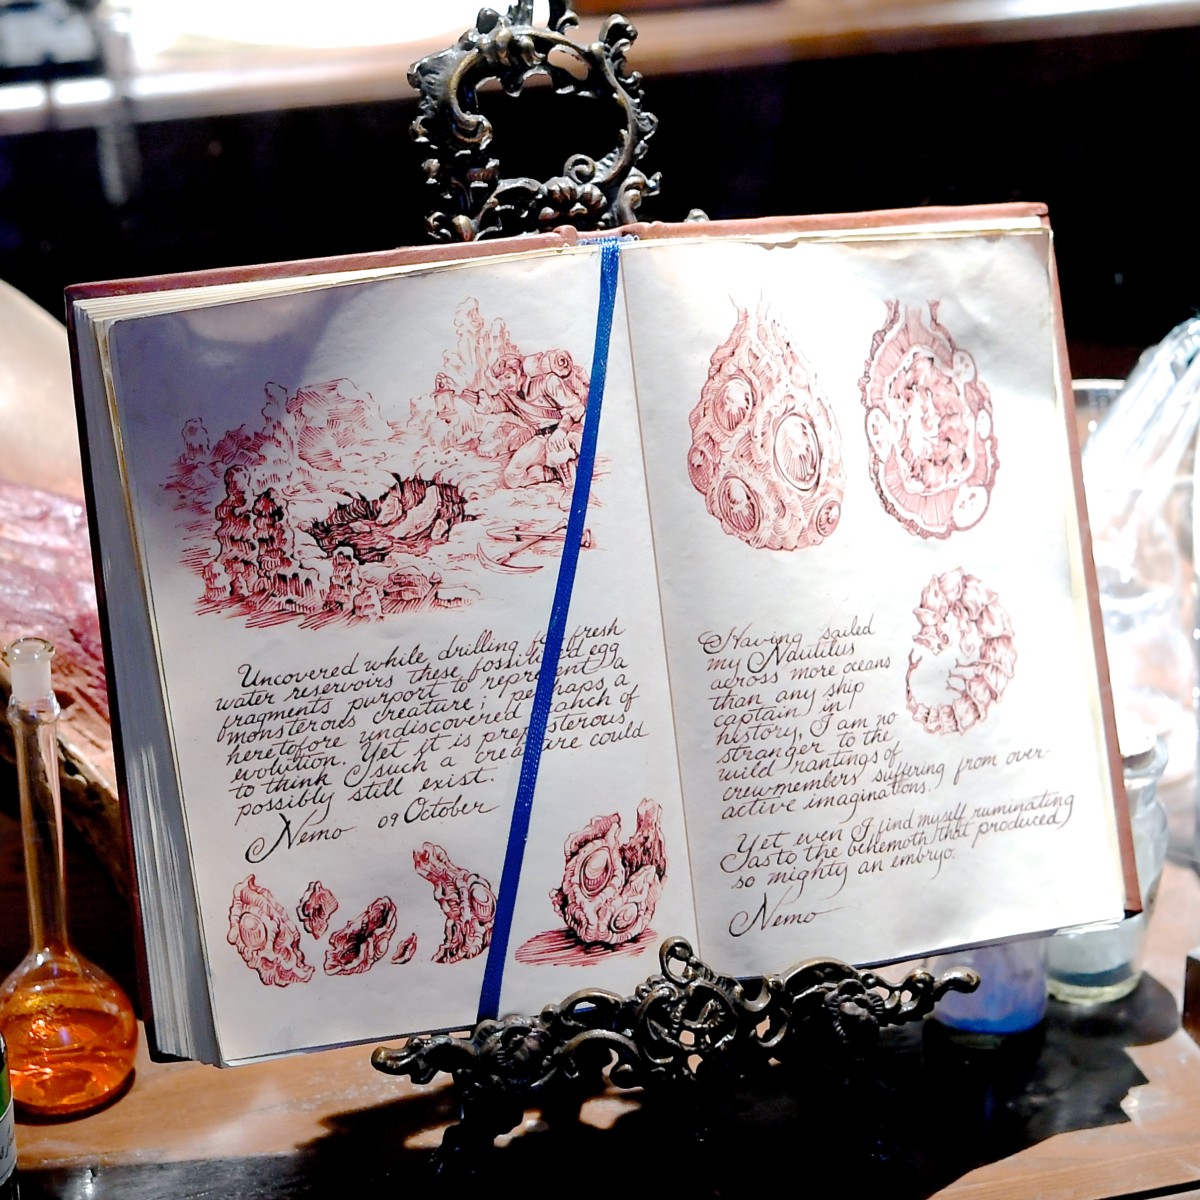 Uncovered while drilling for fresh
water reservoirs these fossilized egg
fragments purport to represent a
monsterous creature; perhaps a
heretofore undiscovered branch of
evolution. Yet it is preposterous
to think such a creature could
possibly still exist.
Nemo 09 October
Having sailed
my Nautilus
across more oceans
than any ship
captain in
history, I am no
stranger to the
wild rantings of
crewmembers suffering from over-
active imaginations.
Yet even I find myself ruminating
as to the behemoth that produced
so mighty an embryo.
Nemo